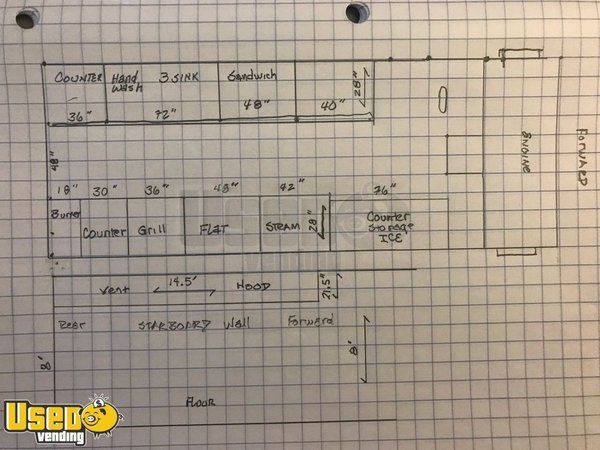 COUNTER Hand Wash 3 SINK Sandwich
36" 72" 48" 40" 28"
48"
ENGINE
FORWARD
18" 30" 36" 48" 42" 76"
Burner Counter Grill FLAT STEAM 28" Counter Storage ICE
Vent 14.5' HOOD 21.5"
Rear STARBOARD Wall Forward
8' 8'
FLOOR
USED
vending